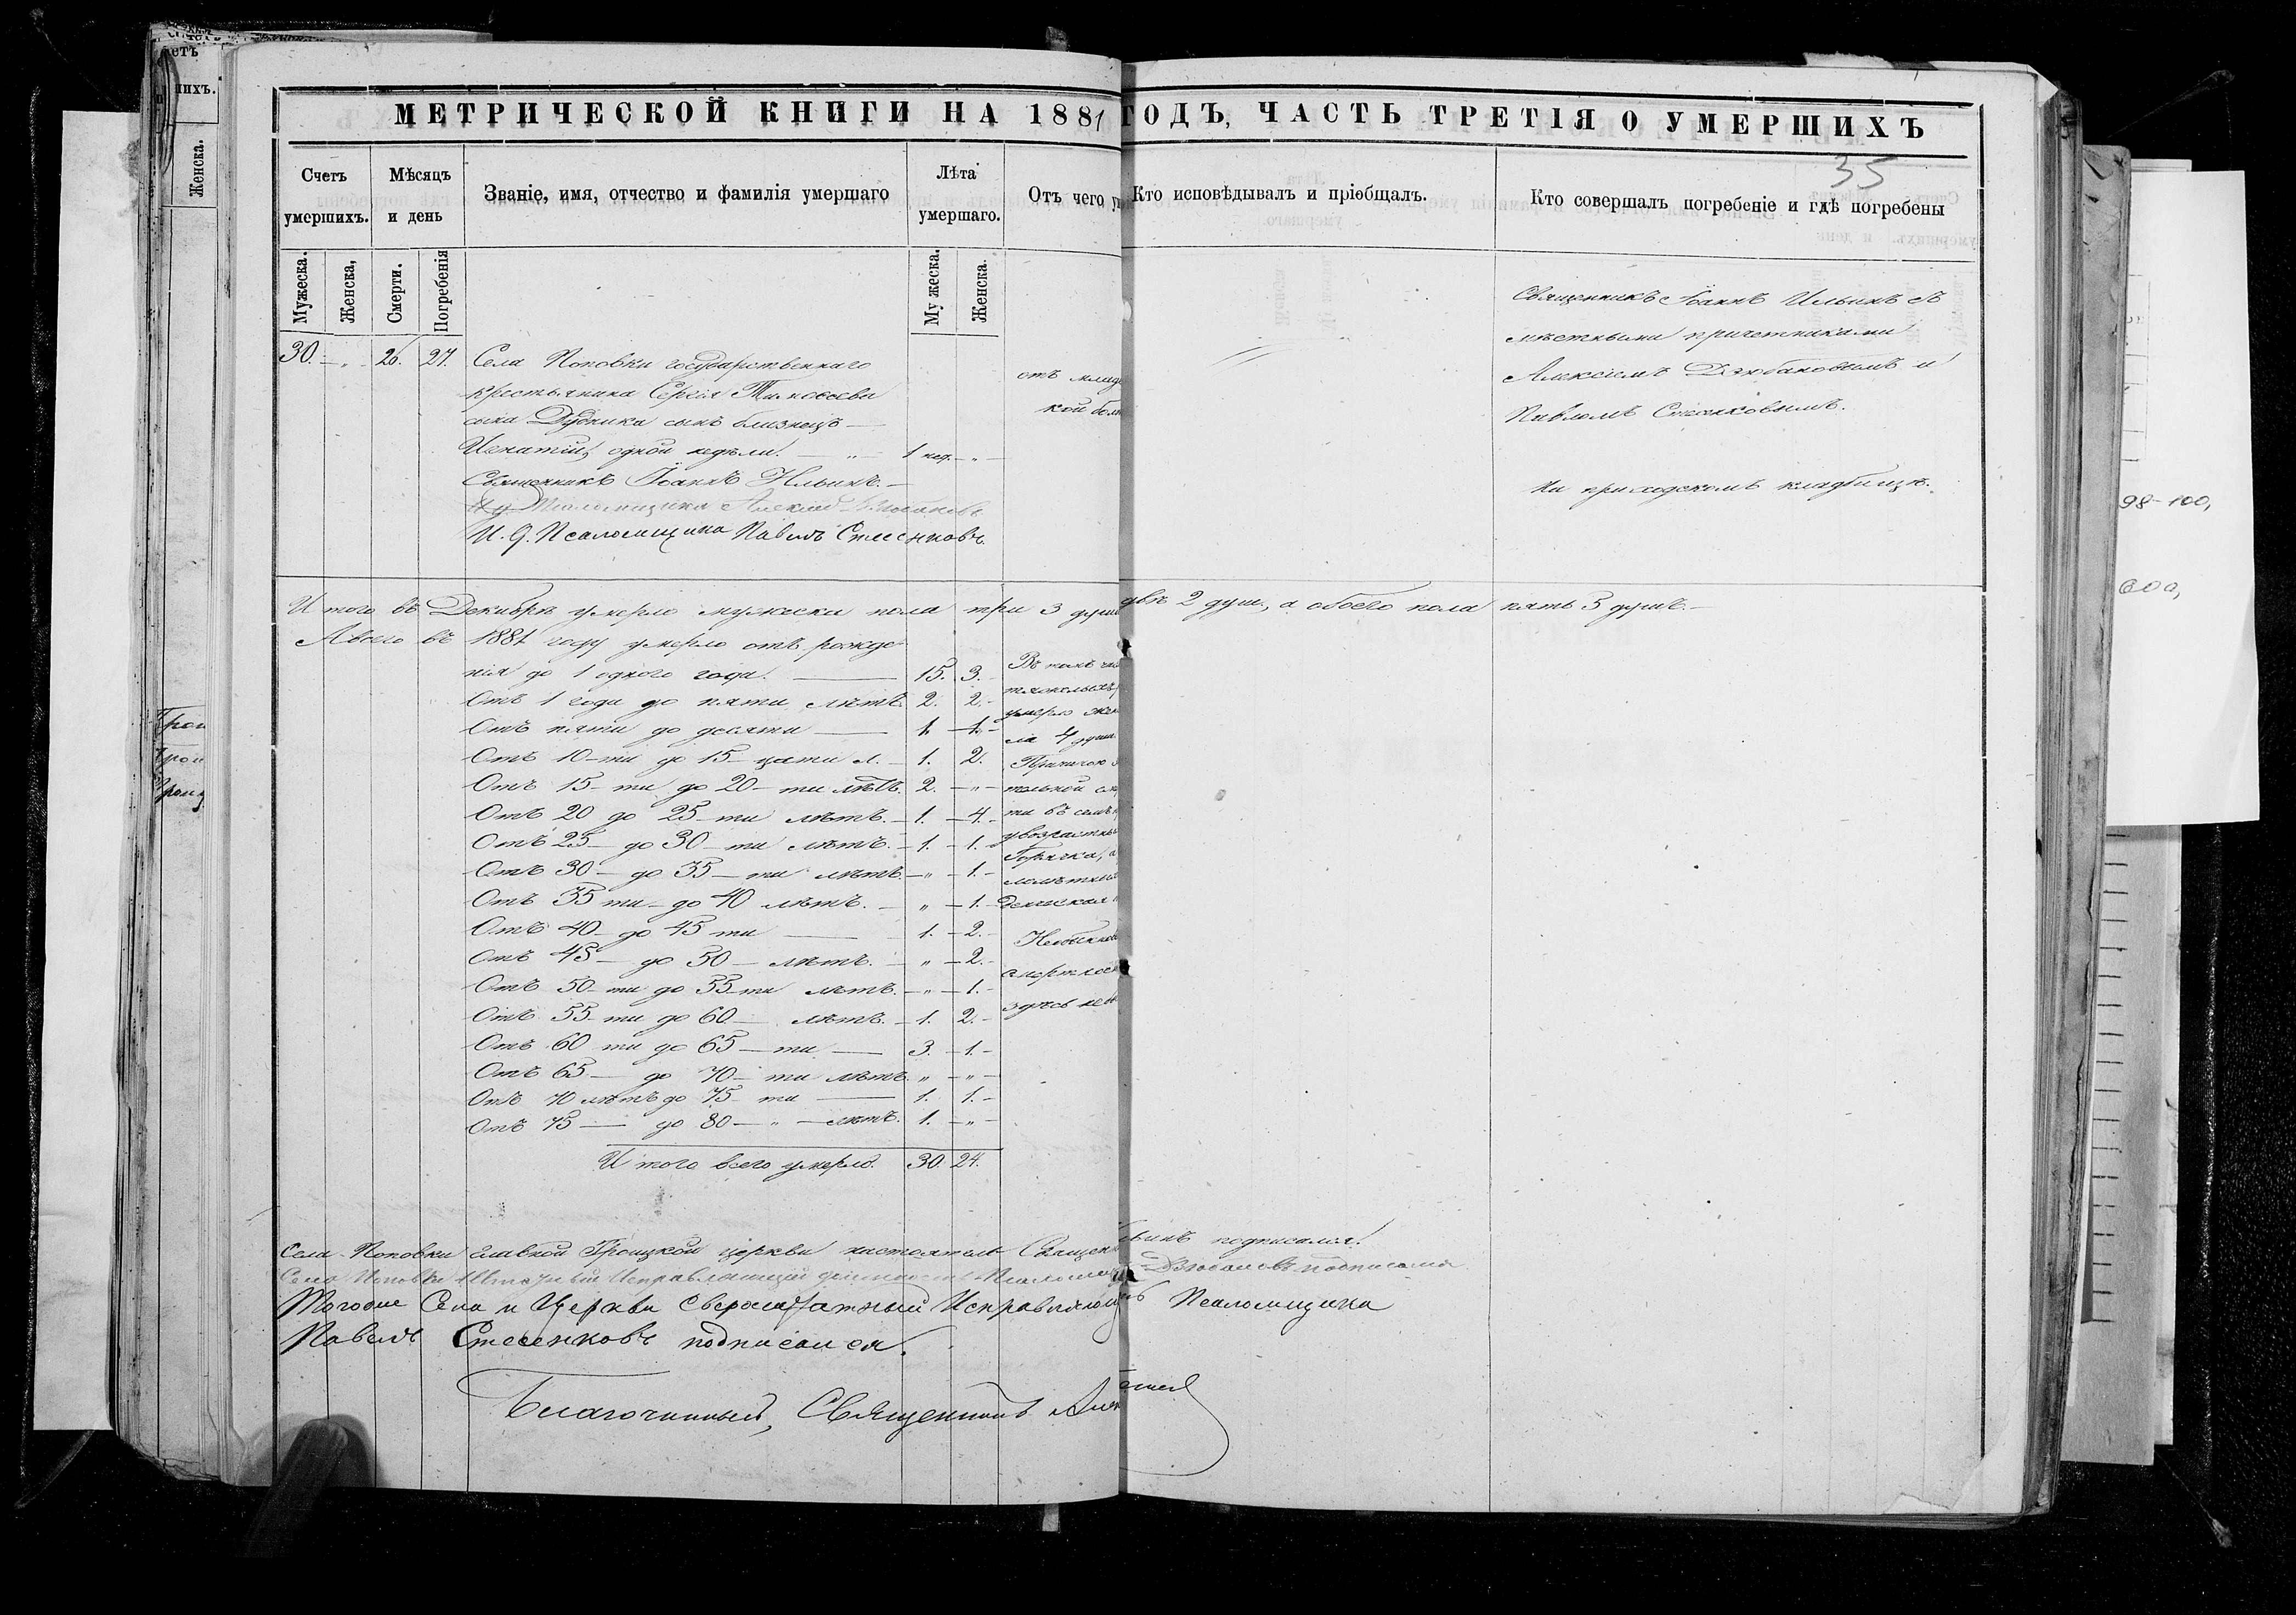 МЕТРИЧЕСКОЙ КНИГИ НА 1881 ГОДЪ, ЧАСТЬ ТРЕТІЯ О УМЕРШИХЪ
35
Счетъ умершихъ.
Мѣсяцъ и день
Званіе, имя, отчество и фамилія умершаго
Лѣта умершаго.
Отъ чего
Кто исповѣдывалъ и пріобщалъ.
Кто совершалъ погребеніе и гдѣ погребены
Мужеска.
Женска,
Смерти.
Погребенія
Мужеска.
Женска.
30. — „ 26. 27. Села Поповки государственнаго
крестьянина Сергія Тимовеева
сына Дудника сынъ близнецъ —
Игнатій, одной недѣли. — „ — 1 нед. — „ —
Священникъ Іоаннъ Ильинъ. —
Псаломщика Алексій
И. д. Псаломщика Павелъ Стесенковъ.
отъ млад
кой бол
Священникъ Іоаннъ Ильинъ съ
мѣстными причетниками
Алексіемъ Дзюбановымъ и
Павломъ Стесенковымъ.
На приходскомъ кладбищѣ.
Итого въ Декабрѣ умерло мужеска пола три 3 душ двѣ 2 душ, а обоего пола пять 5 душъ. —
А всего въ 1881 году умерло отъ рожде
нія до 1 одного года. — 15. 3. —
Отъ 1 года до пяти лѣтъ. 2. 2. —
Отъ пяти до десяти — 1. 1. —
Отъ 10-ти до 15-цати л. — 1. 2.
Отъ 15-ти до 20-ти лѣтъ. 2. — „ —
Отъ 20 до 25-ти лѣтъ. — 1. — 4. —
Отъ 25 — до 30-ти лѣтъ. — 1. — 1. —
Отъ 30 — до 35-ти лѣтъ. — „ — 1. —
Отъ 35 ти — до 40 лѣтъ. — „ — 1. —
Отъ 40 — до 45 ти — 1. — 2. —
Отъ 45 — до 50 — лѣтъ. — „ — 2. —
Отъ 50-ти до 55-ти лѣтъ. — „ — 1. —
Отъ 55-ти до 60 — лѣтъ. — 1. 2. —
Отъ 60 ти до 65 — ти — 3. — 1. —
Отъ 65 — до 70-ти лѣтъ. „ — „ —
Отъ 70 лѣтъ до 75 ти — 1. 1. —
Отъ 75 — до 80 — „ — лѣтъ. 1. — „ —
Итого всего умерло. 30. 24.
Въ томъ чи
умерло жен
ла 4 душ
Причиною
тельной см
ти въ семъ
увозрастны
Горячка,
лолѣтни
денческая
Необыкнов
смертнос
здѣсь не
Села Поповки главной Троицкой церкви настоятель Священ ьинъ подписался.
Села Поповки Штатный Исправляющій должность Псаломщ Дзюбановъ подписался
Тогоже Села и Церкви Сверхштатный Исправляющ Псаломщика
Павелъ Стесенковъ подписался.
Благочинный, Священникъ
етъ
ихъ.
Женска.
98-100,